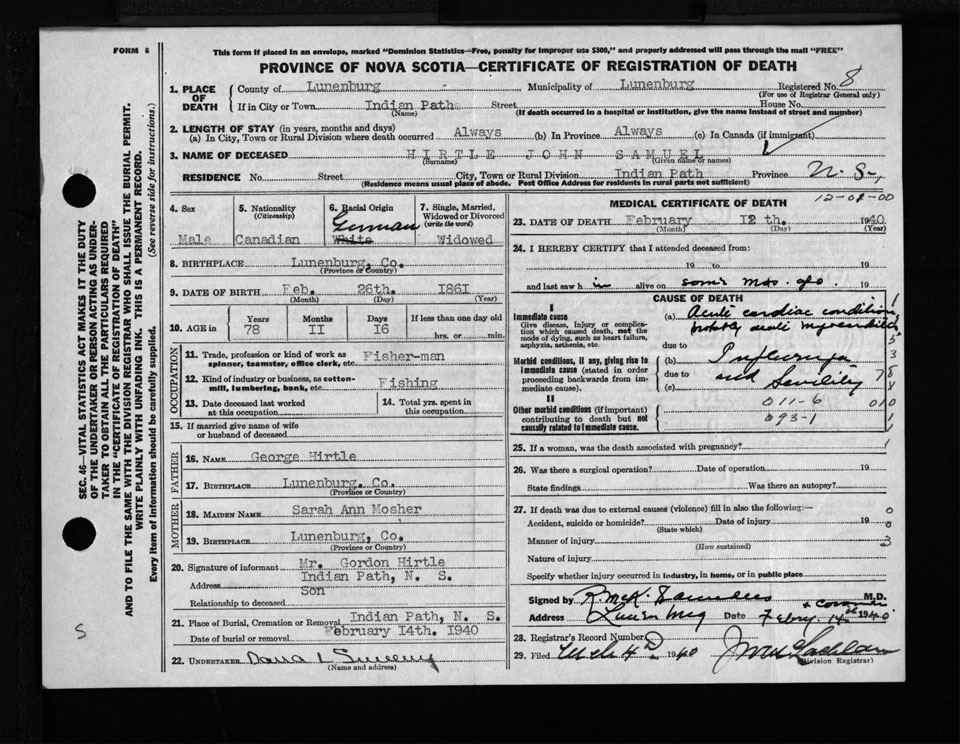 FORM 6
This form if placed in an envelope, marked "Dominion Statistics—Free, penalty for improper use $300," and properly addressed will pass through the mail "FREE"
PROVINCE OF NOVA SCOTIA—CERTIFICATE OF REGISTRATION OF DEATH
1. PLACE OF DEATH
County of Lunenburg Municipality of Lunenburg Registered No. 8
(For use of Registrar General only)
If in City or Town Indian Path Street House No.
(Name) (If death occurred in a hospital or institution, give the name instead of street and number)
2. LENGTH OF STAY (in years, months and days)
(a) In City, Town or Rural Division where death occurred Always (b) In Province Always (c) In Canada (if immigrant)
3. NAME OF DECEASED HIRTLE JOHN SAMUEL
(Surname) (Given name or names)
RESIDENCE No. Street City, Town or Rural Division Indian Path Province N. S.,
(Residence means usual place of abode. Post Office Address for residents in rural parts not sufficient)
12-01-00
4. Sex
Male
5. Nationality
(Citizenship)
Canadian
6. Racial Origin
German
White
7. Single, Married, Widowed or Divorced
(write the word)
Widowed
8. BIRTHPLACE Lunenburg, Co.
(Province or Country)
9. DATE OF BIRTH Feb. 26th. 1861
(Month) (Day) (Year)
10. AGE in
Years Months Days If less than one day old
78 II I6 hrs. or min.
OCCUPATION
11. Trade, profession or kind of work as spinner, teamster, office clerk, etc. Fisher-man
12. Kind of industry or business, as cotton-mill, lumbering, bank, etc. Fishing
13. Date deceased last worked at this occupation
14. Total yrs. spent in this occupation
15. If married give name of wife or husband of deceased
FATHER
16. NAME George Hirtle
17. BIRTHPLACE Lunenburg. Co.
(Province or Country)
MOTHER
18. MAIDEN NAME Sarah Ann Mosher
19. BIRTHPLACE Lunenburg, Co.
(Province or Country)
20. Signature of informant Mr. Gordon Hirtle
Address Indian Path, N. S.
Relationship to deceased Son
21. Place of Burial, Cremation or Removal Indian Path, N. S.
Date of burial or removal February 14th. 1940
22. UNDERTAKER
(Name and address)
MEDICAL CERTIFICATE OF DEATH
23. DATE OF DEATH February 12 th. 1940
(Month) (Day) (Year)
24. I HEREBY CERTIFY that I attended deceased from:
19 to 19
and last saw h im alive on some mos. ago. 19
CAUSE OF DEATH
I
Immediate cause
Give disease, injury or complication which caused death, not the mode of dying, such as heart failure, asphyxia, asthenia, etc.
(a) Acute cardiac condition
probably acute myocarditis
due to
Morbid conditions, if any, giving rise to immediate cause (stated in order proceeding backwards from immediate cause).
(b) Influenza
due to and Senility
(c)
II
Other morbid conditions (if important) contributing to death but not causally related to immediate cause.
011-6
093-1
25. If a woman, was the death associated with pregnancy?
26. Was there a surgical operation? Date of operation 19
State findings Was there an autopsy?
27. If death was due to external causes (violence) fill in also the following:—
Accident, suicide or homicide? Date of injury 19
(State which)
Manner of injury
(How sustained)
Nature of injury
Specify whether injury occurred in industry, in home, or in public place
Signed by R McK. Saunders M.D.
+ Coroner
Address Lunenburg Date Febry. 14th 1940
28. Registrar's Record Number
29. Filed Mch 4th 1940
(Division Registrar)
SEC. 46—VITAL STATISTICS ACT MAKES IT THE DUTY
OF THE UNDERTAKER OR PERSON ACTING AS UNDER-
TAKER TO OBTAIN ALL THE PARTICULARS REQUIRED
IN THE "CERTIFICATE OF REGISTRATION OF DEATH"
AND TO FILE THE SAME WITH THE DIVISION REGISTRAR WHO SHALL ISSUE THE BURIAL PERMIT.
WRITE PLAINLY WITH UNFADING INK. THIS IS A PERMANENT RECORD.
Every item of information should be carefully supplied. (See reverse side for instructions).
S